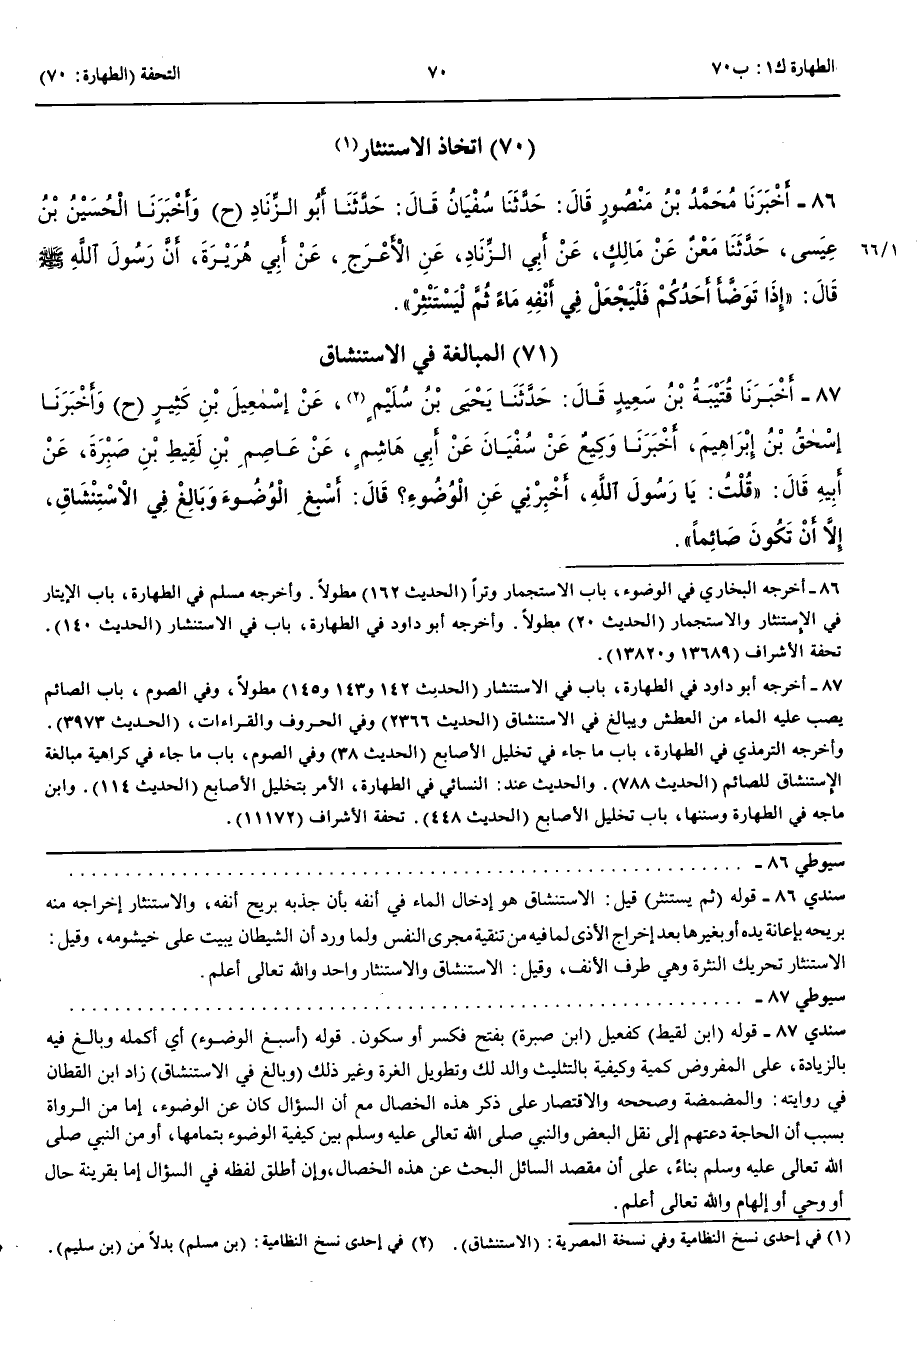 الطهارة ك١: ب٧٠
٧٠
التحفة (الطهارة: ٧٠)
(٧٠) اتخاذ الاستنثار(١)
٨٦ ـ أَخْبَرَنَا مُحَمَّدُ بْنُ مَنْصُورٍ قَالَ: حَدَّثَنَا سُفْيَانُ قَالَ: حَدَّثَنَا أَبُو الزِّنَادِ (ح) وَأَخْبَرَنَا الْحُسَيْنُ بْنُ
عِيَسى، حَدَّثَنَا مَعْنٌ عَنْ مَالِكٍ، عَنْ أَبِي الزِّنَادِ، عَنِ الْأَعْرَجِ، عَنْ أَبِي هُرَيْرَةَ، أَنَّ رَسُولَ اللَّهِ ﷺ
١/٦٦
قَالَ: «إِذَا تَوَضَّأَ أَحَدُكُمْ فَلْيَجْعَلْ فِي أَنْفِهِ مَاءً ثُمَّ لْيَسْتَنْثِرْ».
(٧١) المبالغة في الاستنشاق
٨٧ ـ أَخْبَرَنَا قُتَيْبَةُ بْنُ سَعِيدٍ قَالَ: حَدَّثَنَا يَحْيَى بْنُ سُلَيْمٍ(٢)، عَنْ إِسْمٰعِيلَ بْنِ كَثِيرٍ (ح) وَأَخْبَرَنَا
إِسْحٰقُ بْنُ إِبْرَاهِيمَ، أَخْبَرَنَا وَكِيعٌ عَنْ سُفْيَانَ عَنْ أَبِي هَاشِمٍ، عَنْ عَاصِمِ بْنِ لَقِيطِ بْنِ صَبِرَةَ، عَنْ
أَبِيهِ قَالَ: «قُلْتُ: يَا رَسُولَ اللَّهِ، أَخْبِرْنِي عَنِ الْوُضُوءِ؟ قَالَ: أَسْبِغِ الْوُضُوءَ وَبَالِغْ فِي الْاسْتِنْشَاقِ،
إِلَّا أَنْ تَكُونَ صَائِماً».
٨٦ـ أخرجه البخاري في الوضوء، باب الاستجمار وتراً (الحديث ١٦٢) مطولاً. وأخرجه مسلم في الطهارة، باب الإيتار
في الإستنثار والاستجمار (الحديث ٢٠) مطولاً. وأخرجه أبو داود في الطهارة، باب في الاستنشار (الحديث ١٤٠).
تحفة الأشراف (١٣٦٨٩ و١٣٨٢٠).
٨٧ ـ أخرجه أبو داود في الطهارة، باب في الاستنشار (الحديث ١٤٢ و١٤٣ و١٤٥) مطولاً، وفي الصوم، باب الصائم
يصب عليه الماء من العطش ويبالغ في الاستنشاق (الحديث ٢٣٦٦) وفي الحروف والقراءات، (الحديث ٣٩٧٣).
وأخرجه الترمذي في الطهارة، باب ما جاء في تخليل الأصابع (الحديث ٣٨) وفي الصوم، باب ما جاء في كراهية مبالغة
الإستنشاق للصائم (الحديث ٧٨٨). والحديث عند: النسائي في الطهارة، الأمر بتخليل الأصابع (الحديث ١١٤). وابن
ماجه في الطهارة وسننها، باب تخليل الأصابع (الحديث ٤٤٨). تحفة الأشراف (١١١٧٢).
سيوطي ٨٦ ـ . . . . . . . . . . . . . . . . . . . . . . . . . . . . . .
سندي ٨٦ ـ قوله (ثم يستنثر) قيل: الاستنشاق هو إدخال الماء في أنفه بأن جذبه بريح أنفه، والاستنثار إخراجه منه
بريحه بإعانة يده أو بغيرها بعد إخراج الأذى لما فيه من تنقية مجرى النفس ولما ورد أن الشيطان يبيت على خيشومه، وقيل:
الاستنثار تحريك النثرة وهي طرف الأنف، وقيل: الاستنشاق والاستنثار واحد والله تعالى أعلم.
سيوطي ٨٧ ـ . . . . . . . . . . . . . . . . . . . . . . . . . . . . . .
سندي ٨٧ ـ قوله (ابن لقيط) كفعيل (ابن صبرة) بفتح فكسر أو سكون. قوله (أسبغ الوضوء) أي أكمله وبالغ فيه
بالزيادة، على المفروض كمية وكيفية بالتثليث والد لك وتطويل الغرة وغير ذلك (وبالغ في الاستنشاق) زاد ابن القطان
في روايته: والمضمضة وصححه والاقتصار على ذكر هذه الخصال مع أن السؤال كان عن الوضوء، إما من الرواة
بسبب أن الحاجة دعتهم إلى نقل البعض والنبي صلى الله تعالى عليه وسلم بين كيفية الوضوء بتمامها، أو من النبي صلى
الله تعالى عليه وسلم بناءً، على أن مقصد السائل البحث عن هذه الخصال،وإن أطلق لفظه في السؤال إما بقرينة حال
أو وحي أو إلهام والله تعالى أعلم.
(١) في إحدى نسخ النظامية وفي نسخة المصرية: (الاستنشاق). (٢) في إحدى نسخ النظامية: (بن مسلم) بدلاً من (بن سليم).